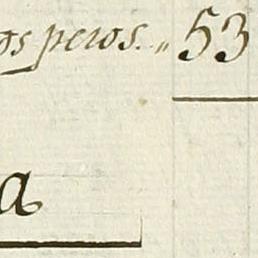 os pesos. „ 53
a